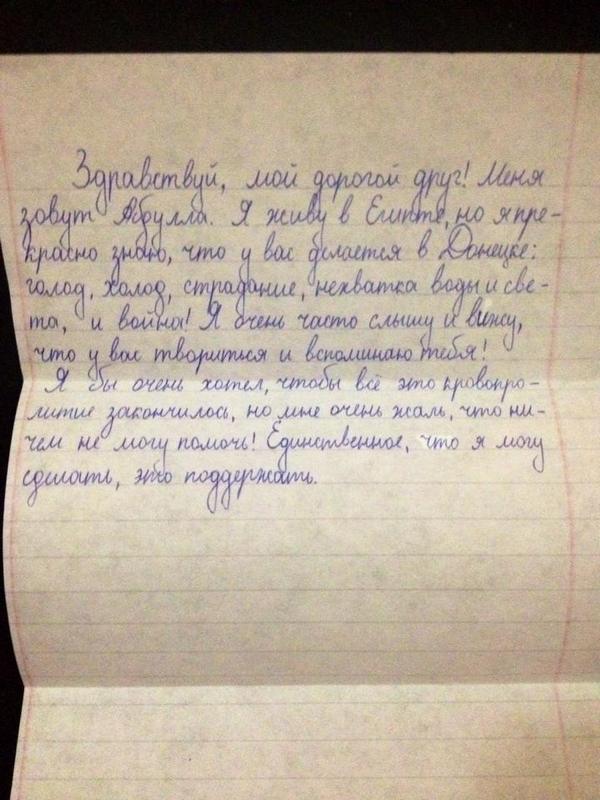 Здравствуй, мой дорогой друг! Меня
зовут Абдулла. Я живу в Египте, но я пре-
красно знаю, что у вас делается в Донецке:
голод, холод, страдание, нехватка воды и све-
та, и война! Я очень часто слышу и вижу,
что у вас твориться и вспоминаю тебя!
Я бы очень хотел, чтобы всё это кровопро-
литие закончилось, но мне очень жаль, что ни-
чем не могу помочь! Единственное, что я могу
сделать, это поддержать.